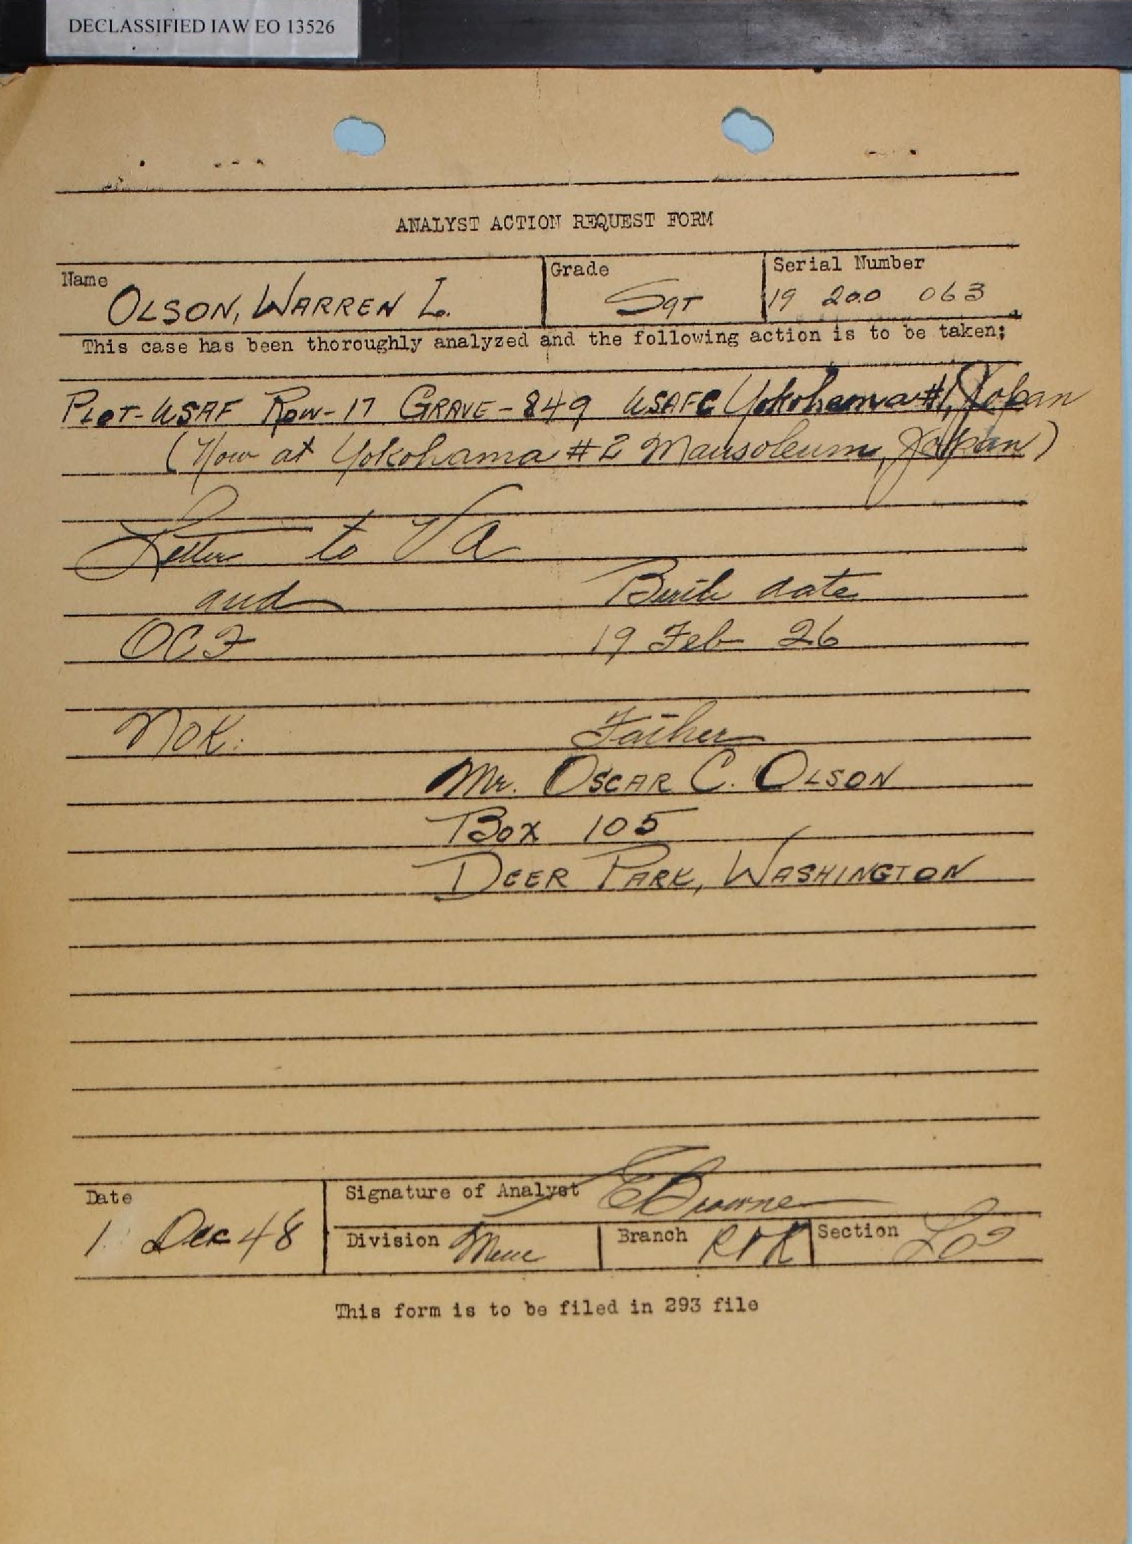 DECLASSIFIED IAW EO 13526
ANALYST ACTION REQUEST FORM
Name Grade Serial Number
OLSON, WARREN L. SGT 19 200 063
This case has been thoroughly analyzed and the following action is to be taken:
PLOT-USAF ROW-17 GRAVE-849 USAFC Yokohama #1, Japan
(Now at Yokohama #2 Mausoleum, Japan)
Letter to VA
and Birth date
OCF 19 Feb 26
NOK: Father
Mr. OSCAR C. OLSON
BOX 105
DEER PARK, WASHINGTON
Date Signature of Analyst E Browne
1 Dec 48 Division Mem Branch Section
This form is to be filed in 293 file